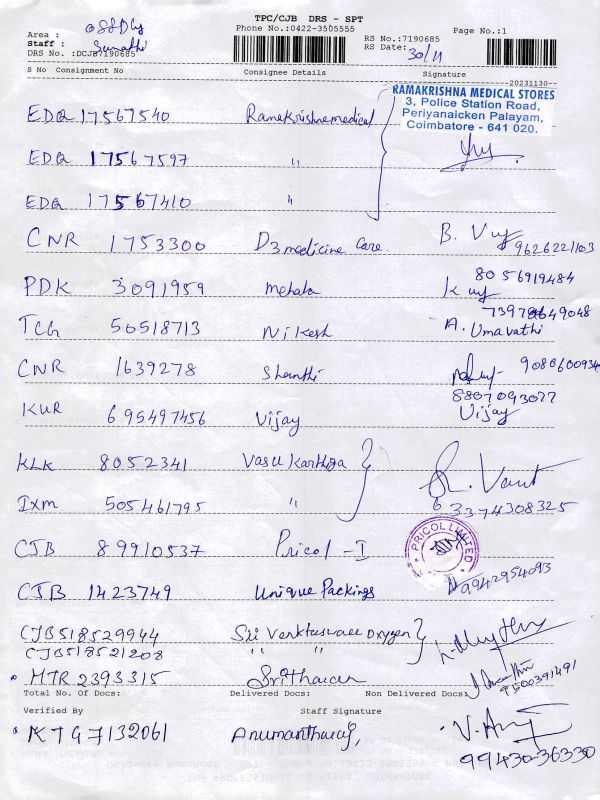 TPC/CJB DRS - SPT
Phone No.:0422-3505555
Page No.:1
Area :
Staff : Sumathi
DRS No. :DCJB7190685
RS No.:7190685
RS Date: 30/11
S No Consignment No Consignee Details Signature
20231130
RAMAKRISHNA MEDICAL STORES
3, Police Station Road,
Periyanaicken Palayam,
Coimbatore - 641 020.
EDQ 17567540 Ramakrishna medical
EDQ 17567597 "
EDQ 17567410 "
CNR 1753300 D3 medicine Care B. 9626221103
PDK 3091959 Mehala 8056919484
TCG 50518713 Nikesh A. Umavathi
CNR 1639278 Shanthi 9080600934
KUR 695497456 Vijay 8807093077 Vijay
KLK 8052341 Vasu Karthiga
IXM 505461795 " 6374308325
CJB 89910537 Pricol - I PRICOL LIMITED
CJB 1423749 Unique Packings 9942954093
CJB518529944 Sri Oxygen
CJB518521208 " "
MTR 2393315 9500391491
Total No. Of Docs: Delivered Docs: Non Delivered Docs:
Verified By Staff Signature
KTG7132061 Anumantharaj, 99430-36330